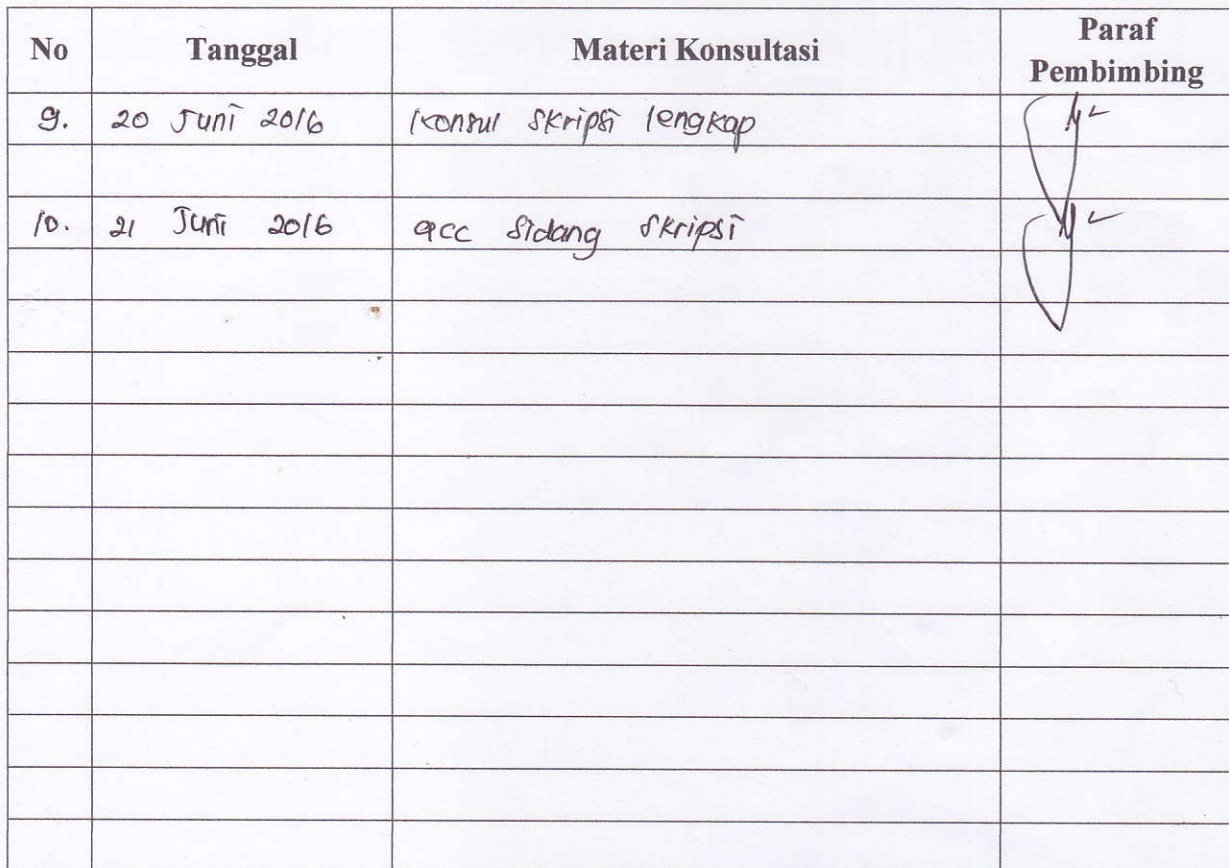 No Tanggal Materi Konsultasi Paraf Pembimbing
9. 20 Juni 2016 Konsul skripsi lengkap
10. 21 Juni 2016 acc sidang skripsi